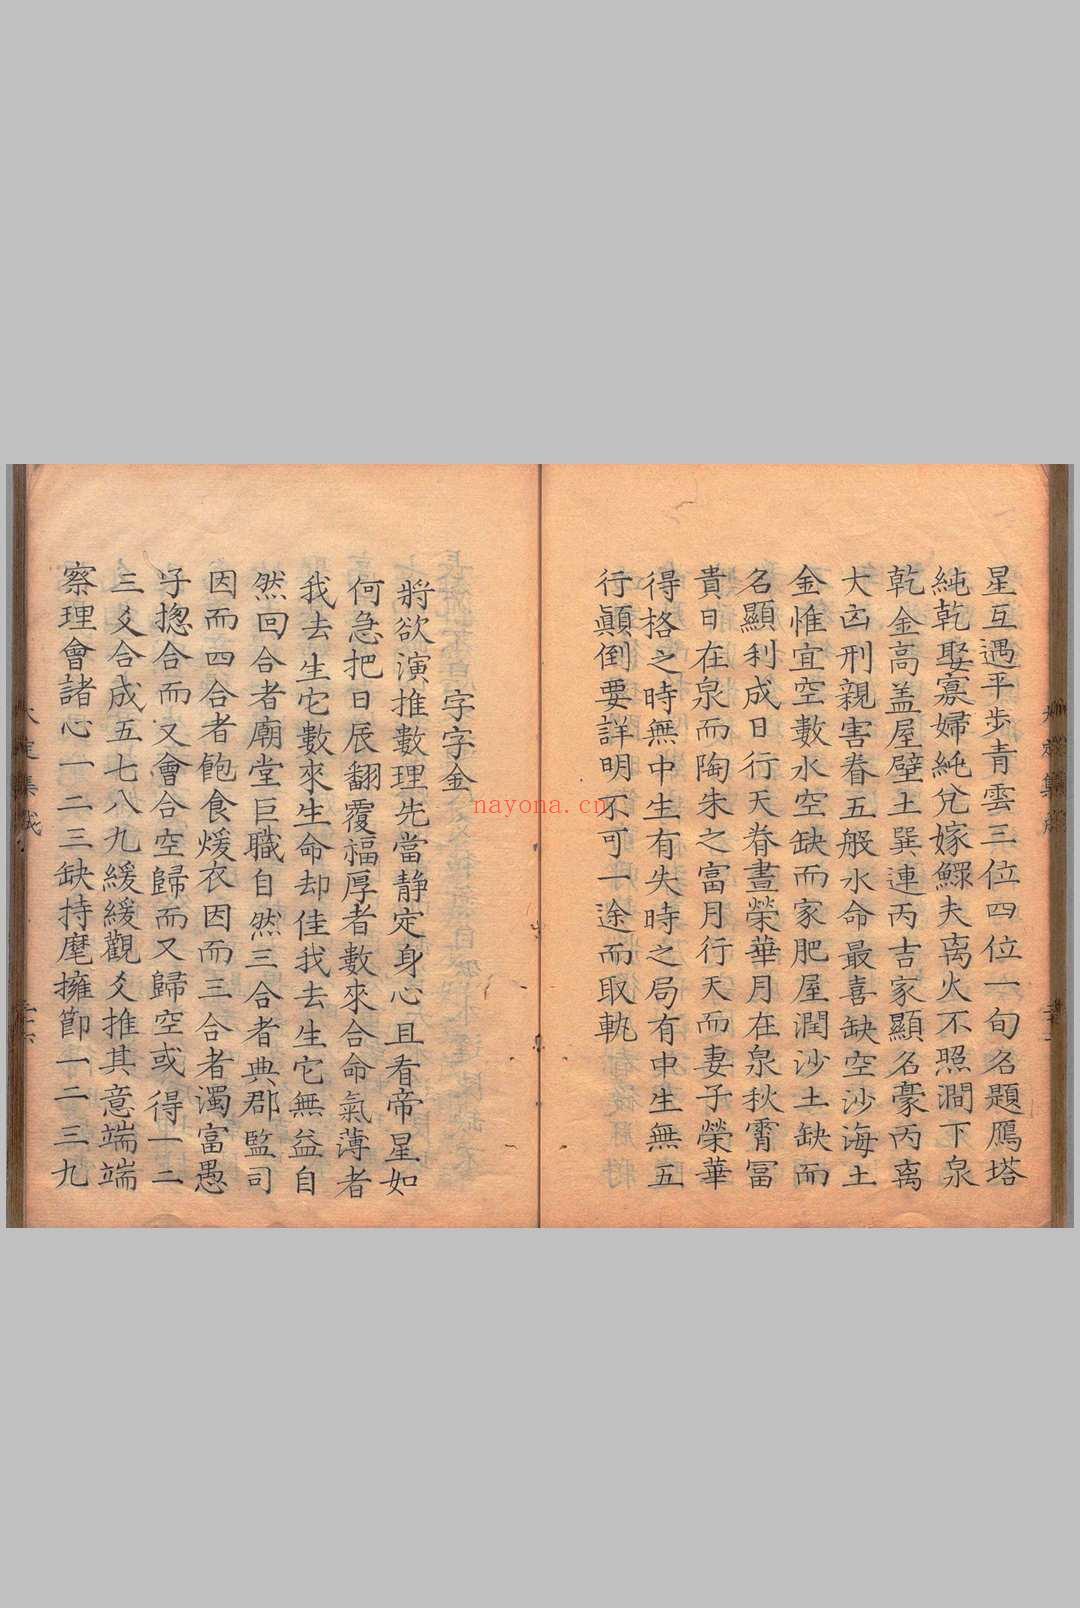 星互遇平步青雲三位四位一旬名題鴈塔
純乾娶寡婦純兌嫁鰥夫离火不照澗下泉
乾金高盖屋壁土巽連丙吉家顯名豪丙离
大凶刑親害眷五般水命最喜缺空沙海土
金惟宜空數水空缺而家肥屋潤沙土缺而
名顯利成日行天眷晝榮華月在泉秋霄冨
貴日在泉而陶朱之富月行天而妻子榮華
得格之時無中生有失時之局有中生無五
行顛倒要詳明不可一途而取軌
字字金
將欲演推數理先當静定身心且看帝星如
何急把日辰翻覆福厚者數來合命氣薄者
我去生它數來生命却佳我去生它無益自
然回合者廟堂巨職自然三合者典郡監司
因而四合者飽食煖衣因而三合者濁富愚
子揔合而又會合空歸而又歸空或得一二
三爻合成五七八九緩緩觀爻推其意端端
察理會諸心一二三缺持麾擁節一二三九
大定集成
nayona.cn